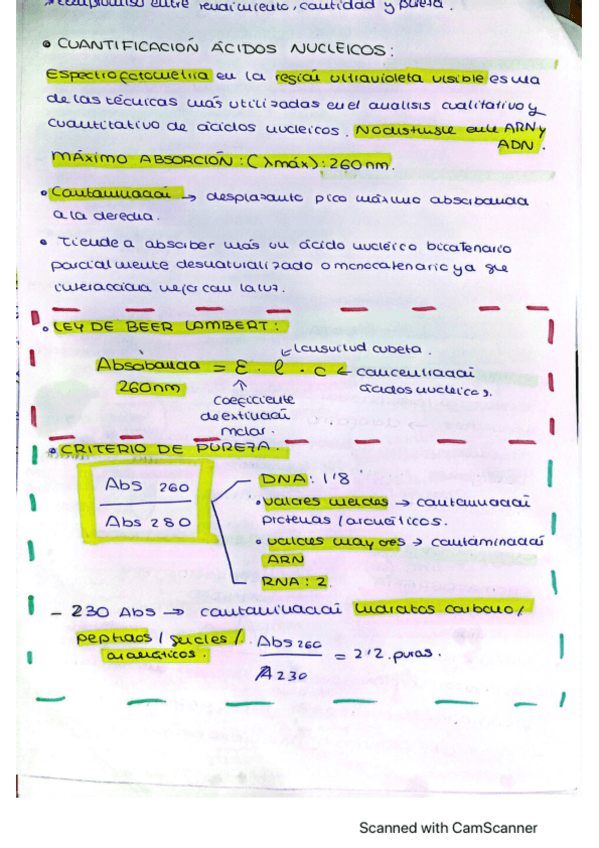 compromiso entre rendimiento, cantidad y pureza.
• CUANTIFICACIÓN ÁCIDOS NUCLEICOS:
Espectrofotometria en la región ultravioleta visible es una
de las técnicas más utilizadas en el analisis cualitativo y
cuantitativo de ácidos nucleicos. No distingue entre ARN y
ADN.
MÁXIMO ABSORCIÓN: (λmáx): 260nm.
• Contaminación → desplazante pico máximo absorbancia
a la derecha.
• Tiende a absorber más un ácido nucléico bicatenario
parcialmente desnaturalizado o monocatenario ya que
interacciona mejor con la luz.
• LEY DE BEER LAMBERT:
Longitud cubeta.
Absorbancia = ε · l · c ← concentración
260nm
ácidos nucleicos.
coeficiente
de extinción
molar.
• CRITERIO DE PUREZA.
Abs 260
Abs 280
DNA: 1'8
• valores menores → contaminación
proteinas / aromáticos.
• valores mayores → contaminación
ARN
RNA: 2.
- 230 Abs → contaminación hidratos carbono /
peptidos / fenoles /
aromáticos.
Abs 260
A 230
= 2'2. puras.
Scanned with CamScanner